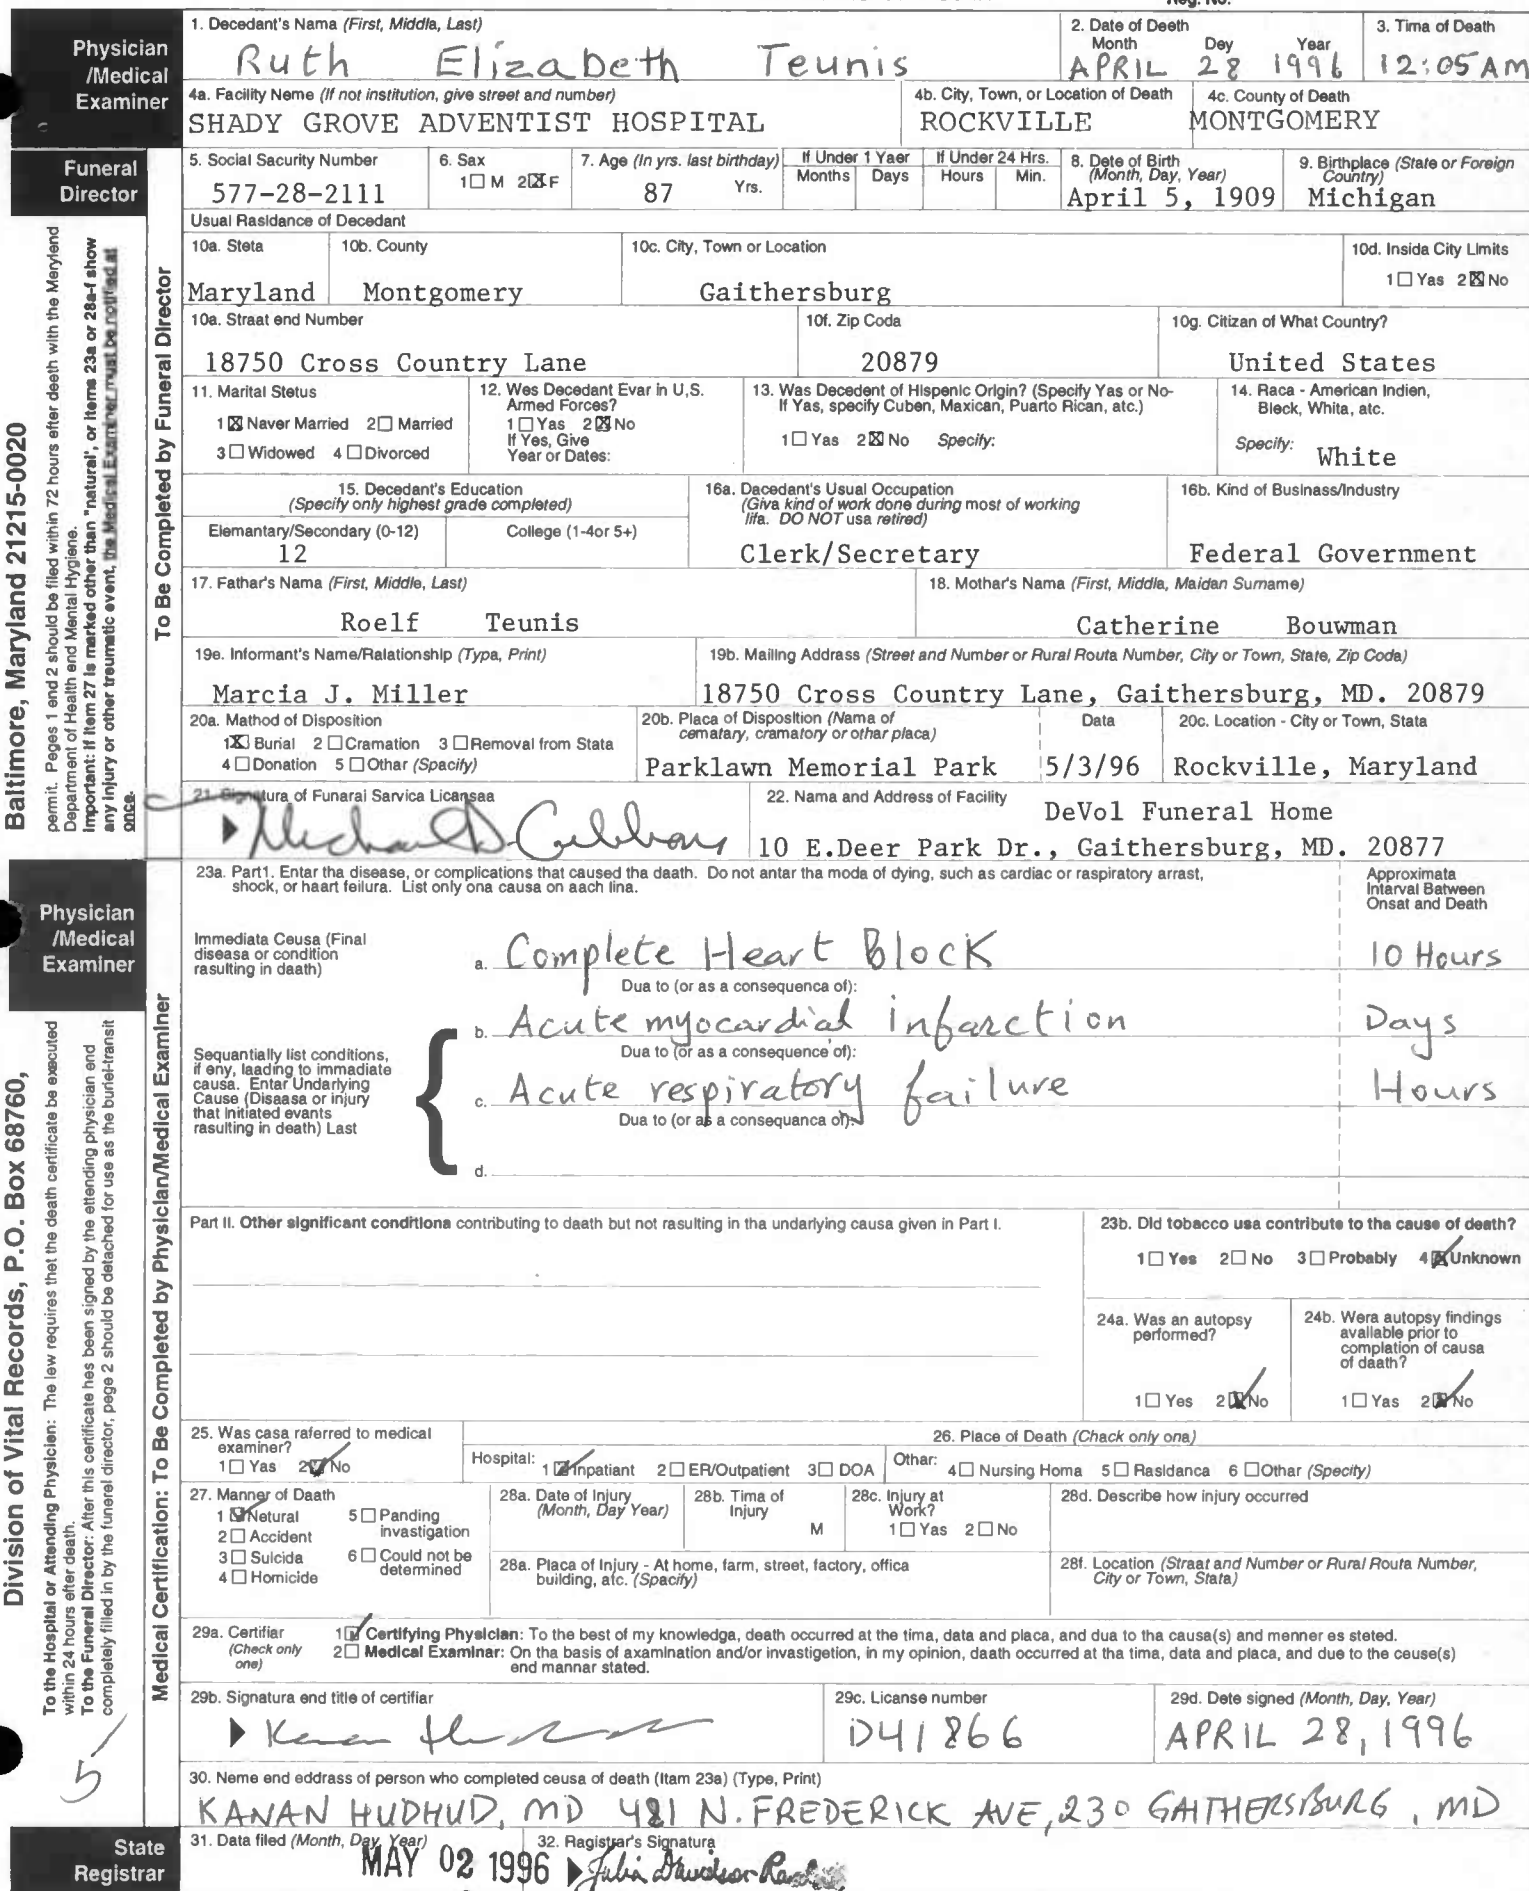 Reg. No.
Physician /Medical Examiner
1. Decedant's Name (First, Middle, Last)
Ruth Elizabeth Teunis
2. Date of Deeth
Month Dey Year
APRIL 28 1996
3. Tima of Death
12:05 AM
4a. Facility Neme (If not institution, give street and number)
SHADY GROVE ADVENTIST HOSPITAL
4b. City, Town, or Location of Death
ROCKVILLE
4c. County of Death
MONTGOMERY
Funeral Director
5. Social Sacurity Number
577-28-2111
6. Sax
1☐ M 2☒ F
7. Age (In yrs. last birthday)
87 Yrs.
If Under 1 Yaer
Months Days
If Under 24 Hrs.
Hours Min.
8. Dete of Birth (Month, Day, Year)
April 5, 1909
9. Birthplace (State or Foreign Country)
Michigan
Usual Rasidance of Decedant
10a. Steta
Maryland
10b. County
Montgomery
10c. City, Town or Location
Gaithersburg
10d. Insida City Limits
1☐ Yas 2☒ No
10a. Straat end Number
18750 Cross Country Lane
10f. Zip Coda
20879
10g. Citizan of What Country?
United States
11. Marital Stetus
1☒ Navar Married 2☐ Married
3☐ Widowed 4☐ Divorced
12. Wes Decedant Evar in U,S. Armed Forces?
1☐ Yas 2☒ No
If Yes, Give
Year or Dates:
13. Was Decedent of Hispenic Origin? (Specify Yas or No-
If Yas, specify Cuben, Maxican, Puarto Rican, atc.)
1☐ Yas 2☒ No Specify:
14. Raca - American Indien, Bleck, Whita, atc.
Specify: White
15. Decedant's Education
(Specify only highest grade completed)
Elemantary/Secondary (0-12)
12
College (1-4or 5+)
16a. Dacedant's Usual Occupation
(Giva kind of work done during most of working
lifa. DO NOT usa retired)
Clerk/Secretary
16b. Kind of Businass/Industry
Federal Government
17. Fathar's Name (First, Middle, Last)
Roelf Teunis
18. Mothar's Nama (First, Middla, Maidan Surname)
Catherine Bouwman
19e. Informant's Name/Ralationship (Typa, Print)
Marcia J. Miller
19b. Mailing Address (Street and Number or Rural Routa Number, City or Town, State, Zip Coda)
18750 Cross Country Lane, Gaithersburg, MD. 20879
20a. Mathod of Disposition
1☒ Burial 2☐ Cramation 3☐ Removal from Stata
4☐ Donation 5☐ Othar (Spacify)
20b. Placa of Disposition (Nama of
cematary, cramatory or othar placa)
Parklawn Memorial Park
Data
5/3/96
20c. Location - City or Town, Stata
Rockville, Maryland
21. Signatura of Funarai Sarvica Licansaa
22. Nama and Address of Facility
DeVol Funeral Home
10 E.Deer Park Dr., Gaithersburg, MD. 20877
To Be Completed by Funeral Director
Baltimore, Maryland 21215-0020
permit. Peges 1 end 2 should be filed within 72 hours efter deeth with the Merylend
Depertment of Heelth end Mentel Hygiene.
Important: If Item 27 is merked other than "naturel', or items 23a or 28a-f show
any injury or other treumetic event, the Medical Examiner must be notified at
once.
Physician /Medical Examiner
23a. Part1. Entar tha disease, or complications that caused tha daath. Do not antar tha moda of dying, such as cardiac or raspiratory arrast,
shock, or haart feilura. List only ona causa on aach lina.
Approximata
Intarval Batween
Onsat and Death
Immediata Ceusa (Final
diseasa or condition
rasulting in daath)
a. Complete Heart Block 10 Hours
Dua to (or as a consequenca of):
b. Acute myocardial infarction Days
Dua to (or as a consequence of):
Sequantially list conditions,
if eny, laading to immadiate
causa. Entar Undarlying
Cause (Disaasa or injury
that initiated evants
rasulting in death) Last
c. Acute respiratory failure Hours
Dua to (or as a consequanca of):
d.
Part II. Other significant conditiona contributing to daath but not rasulting in tha undarlying causa given in Part I.
23b. Did tobacco usa contribute to tha cause of death?
1☐ Yes 2☐ No 3☐ Probably 4☒ Unknown
24a. Was an autopsy performed?
1☐ Yes 2☒ No
24b. Wera autopsy findings available prior to complation of causa of daath?
1☐ Yas 2☒ No
25. Was casa raferred to medical examiner?
1☐ Yas 2☒ No
26. Place of Death (Chack only ona)
Hospital: 1☒ Inpatiant 2☐ ER/Outpatient 3☐ DOA
Othar: 4☐ Nursing Homa 5☐ Rasidanca 6☐ Othar (Specify)
27. Manner of Daath
1☒ Netural
2☐ Accident
3☐ Suicida
4☐ Homicide
5☐ Panding invastigation
6☐ Could not be determined
28a. Data of Injury (Month, Day Year)
28b. Tima of Injury
M
28c. Injury at Work?
1☐ Yas 2☐ No
28d. Describe how injury occurred
28a. Placa of Injury - At home, farm, street, factory, offica
building, atc. (Spacify)
28f. Location (Straat and Number or Rural Routa Number,
City or Town, Stata)
29a. Certifiar
(Check only one)
1☒ Certifying Physician: To the best of my knowledga, death occurred at the tima, data and placa, and dua to tha causa(s) and menner es steted.
2☐ Medical Examinar: On tha basis of axamination and/or invastigetion, in my opinion, daath occurred at tha tima, data and placa, and due to the ceuse(s)
end mannar stated.
29b. Signatura end title of certifiar
29c. Licansa number
D41866
29d. Dete signed (Month, Day, Year)
APRIL 28, 1996
30. Neme end eddrass of person who completed ceusa of death (Itam 23a) (Type, Print)
KANAN HUDHUD, MD 481 N. FREDERICK AVE, 230 GAITHERSBURG, MD
Medical Certification: To Be Completed by Physician/Medical Examiner
Division of Vital Records, P.O. Box 68760,
To the Hospital or Attending Physicien: The lew requires thet the death certificate be executed
within 24 hours efter death.
To the Funerel Director: After this certificate hes been signed by the ettending physician end
completely filled in by the funerel director, pege 2 should be detached for use as the buriel-transit
5
State Registrar
31. Data filed (Month, Day, Year)
MAY 02 1996
32. Registrar's Signatura